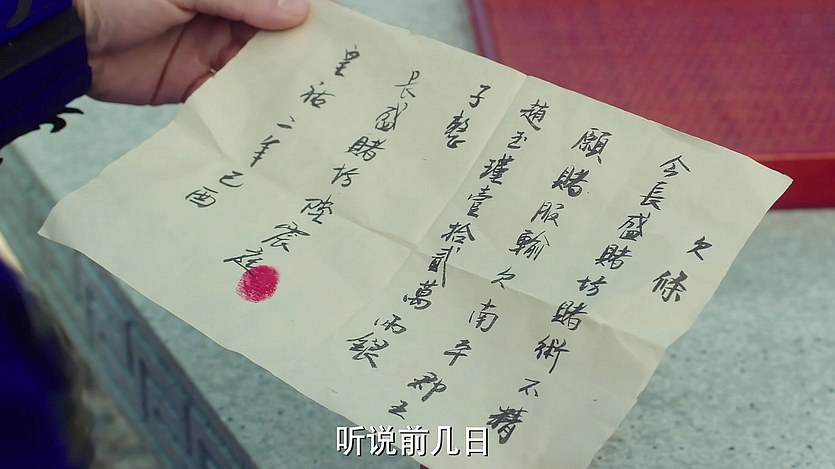 欠條
今長盛賭坊賭術不精
願賭服輸欠南平郡王
趙玉瑾壹拾貳萬兩銀
子整
長盛賭坊陸宸庭
皇祐二年己酉
听说前几日